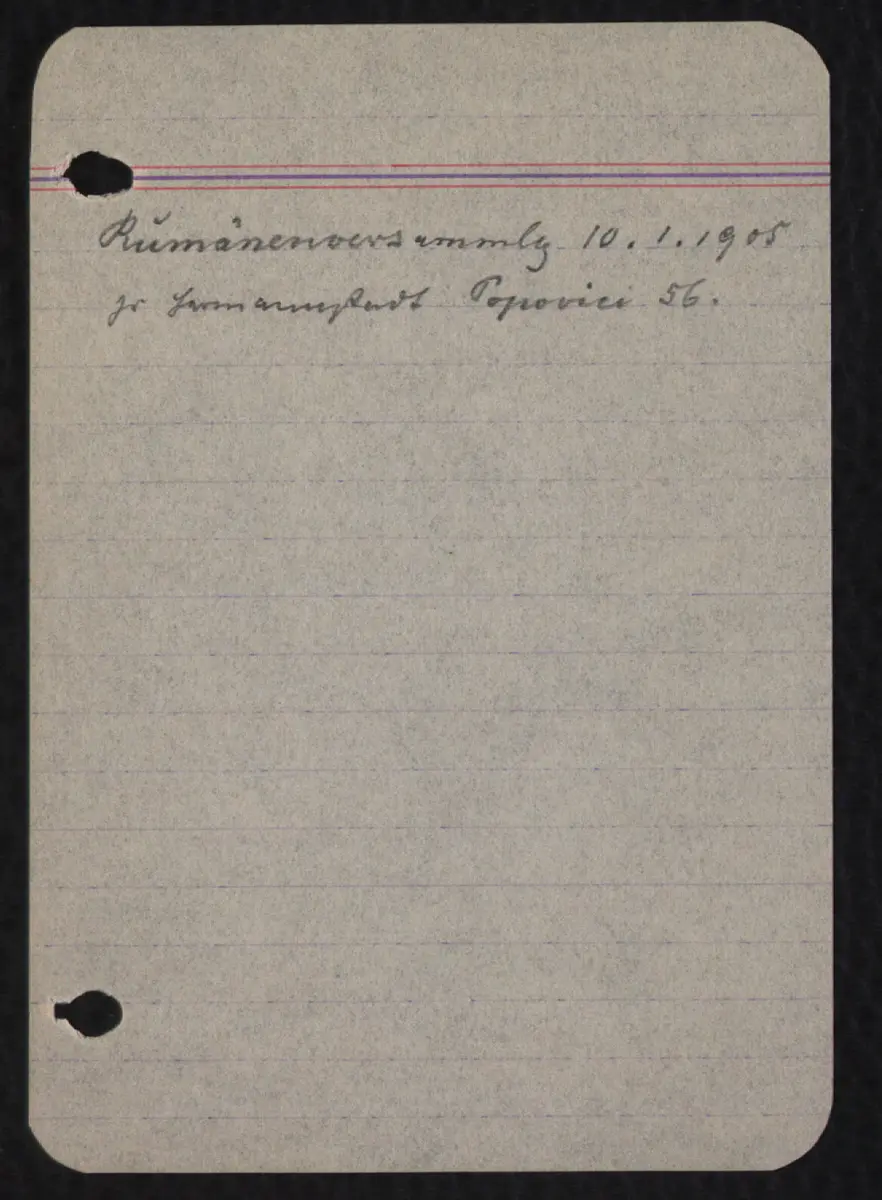 Rumänenversammlg 10.1.1905
zu Hermannstadt Popovici 56.